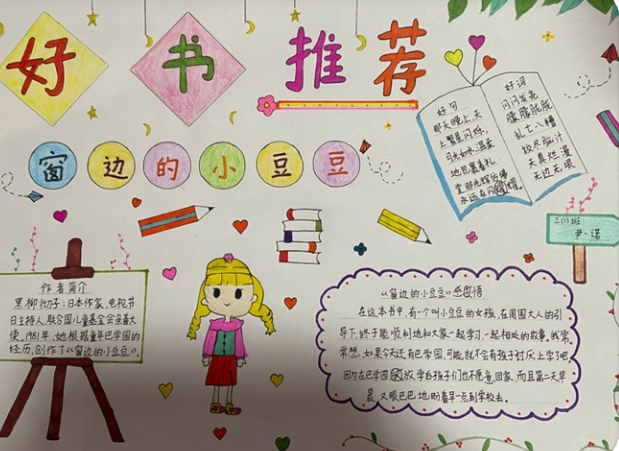 好书推荐
窗边的小豆豆
好句
那天晚上,天
上繁星闪烁,
月光如水,温柔
地包裹着礼
堂,那光辉仿佛
永远在闪耀。
好词
闪闪发亮
朦朦胧胧
乱七八糟
绞尽脑汁
天真烂漫
无边无垠
三(1)班
尹一诺
作者简介
黑柳彻子:日本作家、电视节
目主持人、联合国儿童基金会亲善大
使。1981年,她根据童年巴学园的
经历,创作了《窗边的小豆豆》。
《窗边的小豆豆》感图悟
在这本书中,有一个叫小豆豆的女孩,在周围大人的引
导下,终于能顺利地和大家一起学习,一起相处的故事。我常
常想,如果今天还有巴学园,可能就不会有孩子讨厌上学了吧。
因为在巴学园放学后孩子们也不愿意回家,而且第二天早
晨又眼巴巴地盼着早一点到学校去。